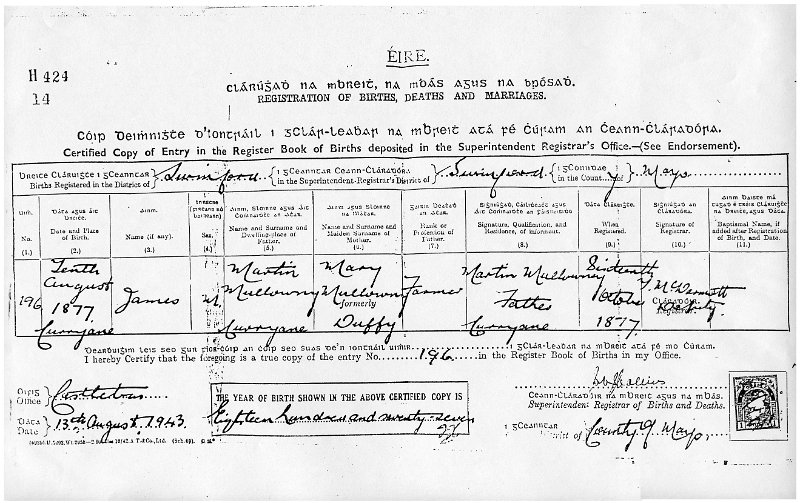 ÉIRE.
H 424
14
CLÁRÚĠAḊ NA MBREIṪ, NA MBÁS AGUS NA BPÓSAḊ.
REGISTRATION OF BIRTHS, DEATHS AND MARRIAGES.
CÓIP ḊEIṀNIṠṪE D'IONTRÁIL I GCLÁR-LEAḂAR NA MBREIṪ ATÁ FÉ ĊÚRAM AN ĊEANN-ĊLÁRAḊÓRA.
Certified Copy of Entry in the Register Book of Births deposited in the Superintendent Registrar's Office.—(See Endorsement).
BREITE CLÁRUIĠTE I GCEANNCAR
Births Registered in the District of
Swinford
I GCEANNCAR CEANN-ĊLÁRAḊÓRA
in the Superintendent-Registrar's District of
Swinford
I GCONNDAE
in the County of
Mayo
Uiṁ.
No.
(1.)
Dáta agus Áit Breite.
Date and Place of Birth.
(2.)
Ainm.
Name (if any).
(3.)
Sex.
(4.)
Name and Surname and Dwelling-place of Father.
(5.)
Name and Surname and Maiden Surname of Mother.
(6.)
Rank or Profession of Father.
(7.)
Signature, Qualification, and Residence, of Informant.
(8.)
Dáta Cláruiġṫe.
When Registered.
(9.)
Signature of Registrar.
(10.)
Baptismal Name, if added after Registration of Birth, and Date.
(11.)
196
Tenth August 1877 Curryane
James
M.
Martin Mullowny Curryane
Mary Mullowny formerly Duffy
Farmer
Martin Mullowney Father Curryane
Sixteenth October 1877
McDermott Deputy
CLÁRAḊÓIR.
Registrar.
I hereby Certify that the foregoing is a true copy of the entry No. 196 in the Register Book of Births in my Office.
OIFIG
Office
Castlebar
DÁTA
Date
13th August, 1943.
THE YEAR OF BIRTH SHOWN IN THE ABOVE CERTIFIED COPY IS
Eighteen hundred and seventy-seven
CEANN-ĊLÁRAḊÓIR NA MBREIṪ AGUS NA MBÁS.
Superintendent Registrar of Births and Deaths.
I GCEANNCAR
District of
County of Mayo.